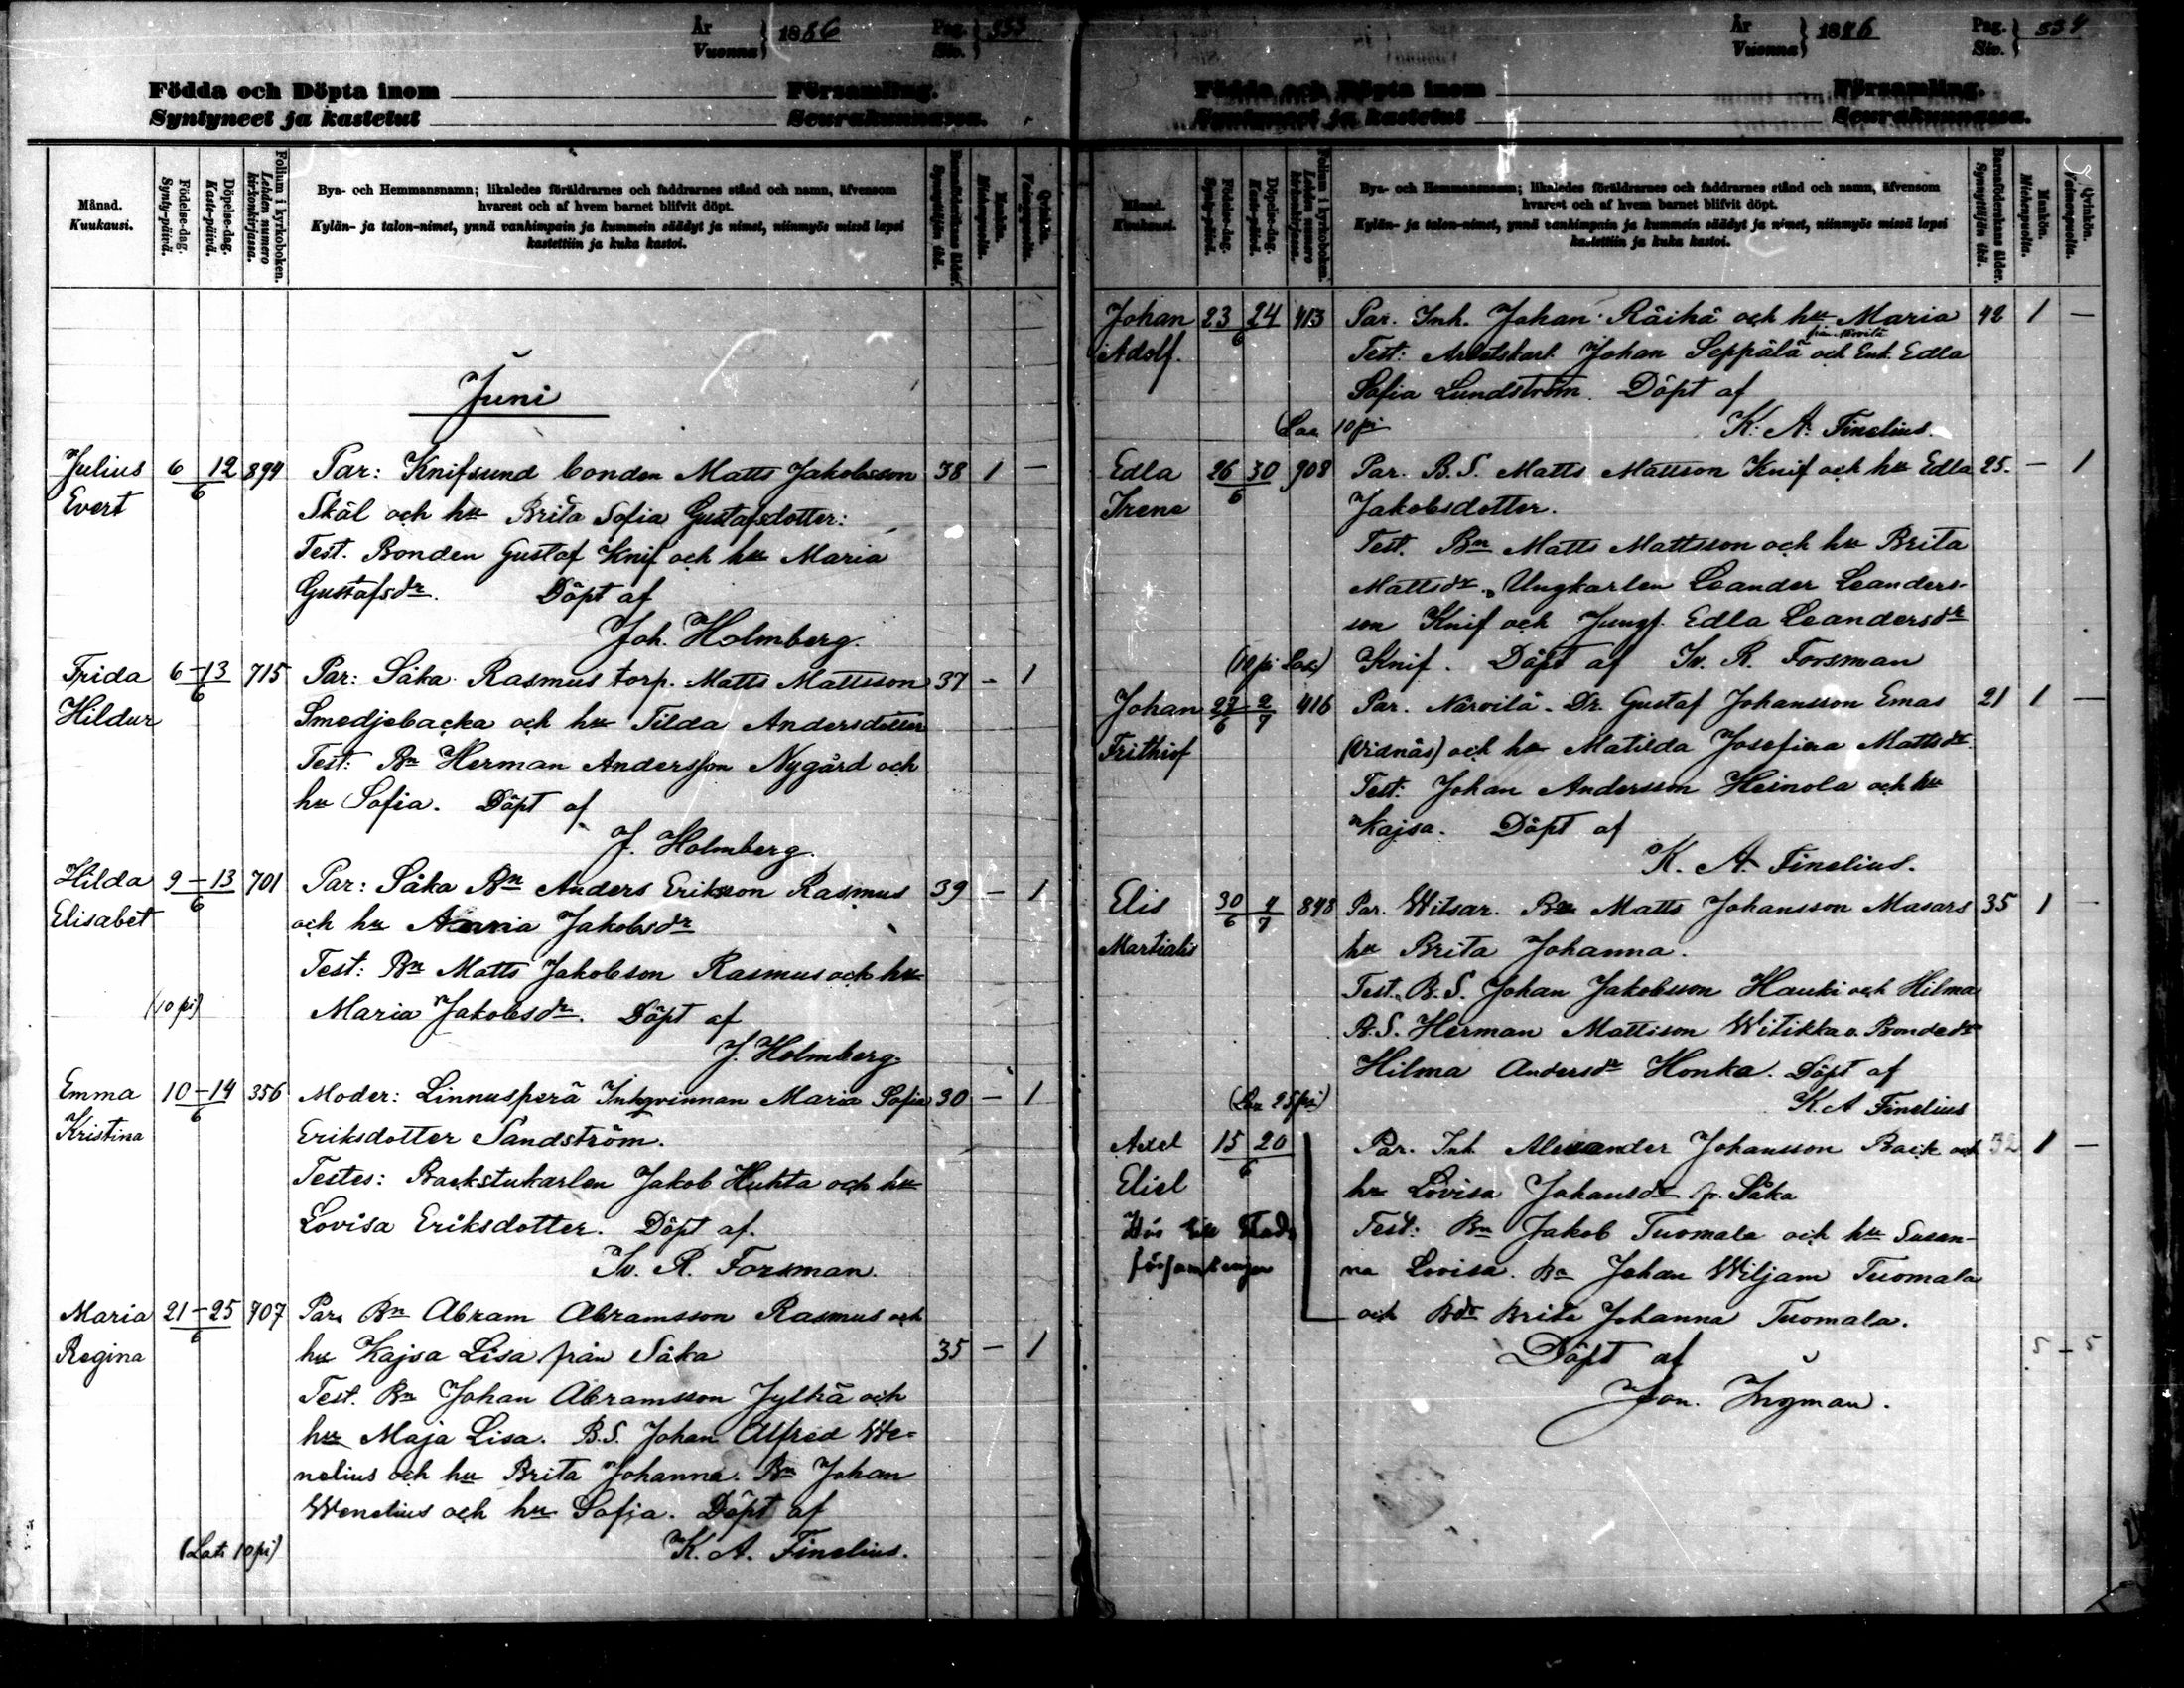 År
Vuonna
1886
Pag.
Siv.
533
Födda och Döpta inom Församling.
Syntyneet ja kastetut Seurakunnassa.
Månad.
Kuukausi.
Födelse-dag.
Synty-päivä.
Döpelse-dag.
Kaste-päivä.
Folium i kyrkoboken.
Lehden numero kirkonkirjassa.
Bya- och Hemmansnamn; likaledes föräldrarnes och faddrarnes stånd och namn, äfvensom
hvarest och af hvem barnet blifvit döpt.
Kylän- ja talon-nimet, ynnä vanhimpain ja kummein säädyt ja nimet, niinmyös missä lapsi
kastettiin ja kuka kastoi.
Barnaföderskans ålder.
Synnyttäjän ikä.
Mankön.
Miehenpuolta.
Qvinkön.
Vaimonpuolta.
Juni
Julius 6 12 894 Par: Knifsund bonden Matts Jakobsson 38 1 —
6
Evert Skäl och hu Brita Sofia Gustafsdotter:
Test. Bonden Gustaf Knif och hu Maria
Gustafsdr. Döpt af
Joh. Holmberg.
Frida 6–13 715 Par: Såka Rasmus torp. Matts Mattsson 37 – 1
6
Hildur Smedjebacka och hu Tilda Andersdotter
Test: Bn Herman Andersson Nygård och
hu Sofia. Döpt af
J. Holmberg.
Hilda 9–13 701 Par: Såka Bn Anders Eriksson Rasmus 39 – 1
6
Elisabet och hu Anna Jakobsdr
Test: Bn Matts Jakobson Rasmus och hu
(10 pi) Maria Jakobsdr. Döpt af
J. Holmberg.
Emma 10–14 356 Moder: Linnusperä Inhqvinnan Maria Sofia 30 – 1
6
Kristina Eriksdotter Sandström.
Testes: Backstukarlen Jakob Huhta och hu
Lovisa Eriksdotter. Döpt af.
Iv. R. Forsman.
Maria 21–25 707 Par. Bn Abram Abramsson Rasmus och
6
Regina hu Kajsa Lisa från Såka 35 – 1
Test. Bn Johan Abramsson Jylhä och
hu Maja Lisa. B.S. Johan Alfred We-
nelius och hu Brita Johanna. Bn Johan
Wenelius och hu Sofia. Döpt af
(Lats 10 pi) K. A. Finelius.
År
Vuonna
1886
Pag.
Siv.
534
Födda och Döpta inom Församling.
Syntyneet ja kastetut Seurakunnassa.
Månad.
Kuukausi.
Födelse-dag.
Synty-päivä.
Döpelse-dag.
Kaste-päivä.
Folium i kyrkoboken.
Lehden numero kirkonkirjassa.
Bya- och Hemmansnamn; likaledes föräldrarnes och faddrarnes stånd och namn, äfvensom
hvarest och af hvem barnet blifvit döpt.
Kylän- ja talon-nimet, ynnä vanhimpain ja kummein säädyt ja nimet, niinmyös missä lapsi
kastettiin ja kuka kastoi.
Barnaföderskans ålder.
Synnyttäjän ikä.
Mankön.
Miehenpuolta.
Qvinkön.
Vaimonpuolta.
Johan 23 24 413 Par. Inh. Johan Räihä och hu Maria 42 1 —
6 från Närvilä
Adolf. Test: Arbetskarl Johan Seppälä och Enk. Edla
Sofia Lundström. Döpt af
10 pi K. A. Finelius.
Edla 26 30 908 Par. B.S. Matts Mattson Knif och hu Edla 25. — 1
6
Irene Jakobsdotter.
Test. Bn Matts Mattsson och hu Brita
Mattsdr., Ungkarlen Leander Leanders-
son Knif och Jungf. Edla Leandersdr
Knif. Döpt af Iv. R. Forsman
Johan 27 2 416 Par. Närvilä. Dr. Gustaf Johansson Emas 21 1 —
6 7
Frithiof (Vidnäs) och hu Matilda Josefina Mattsdr.
Test: Johan Andersson Heinola och hu
Kajsa. Döpt af
K. A. Finelius.
Elis 30 4 843 Par. Witsar. Bn Matts Johansson Masars 35 1 —
6 7
Martialis hu Brita Johanna.
Test. B.S. Johan Jakobsson Hauki och Hilma
B.S. Herman Mattsson Witikka o. Bondedr
Hilma Andersdr Honka. Döpt af
25 pi) K. A Finelius
Axel 15 20 Par. Inh. Alexander Johansson Back och 32 1 —
6
Eliel hu Lovisa Johansdr fr. Såka
Test: Bn Jakob Tuomala och hu Susan-
na Lovisa. Bn Johan Wiljam Tuomala
församlingen och Bdr Brita Johanna Tuomala.
5 – 5
Döpt af
Jon. Ingman.